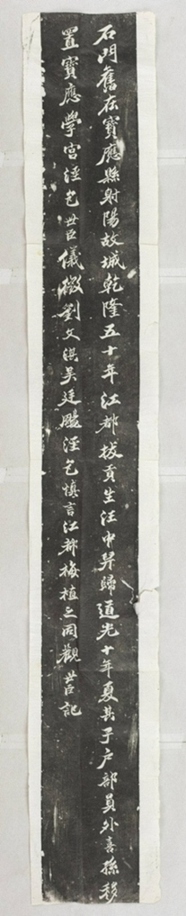 石門舊在寶應縣射陽故城乾隆五十年江都拔貢生汪中舁歸道光十年夏其子戶部員外喜孫移
置寶應學宮涇包世臣儀徵劉文淇吳廷颺涇包慎言江都梅植之同觀世臣記